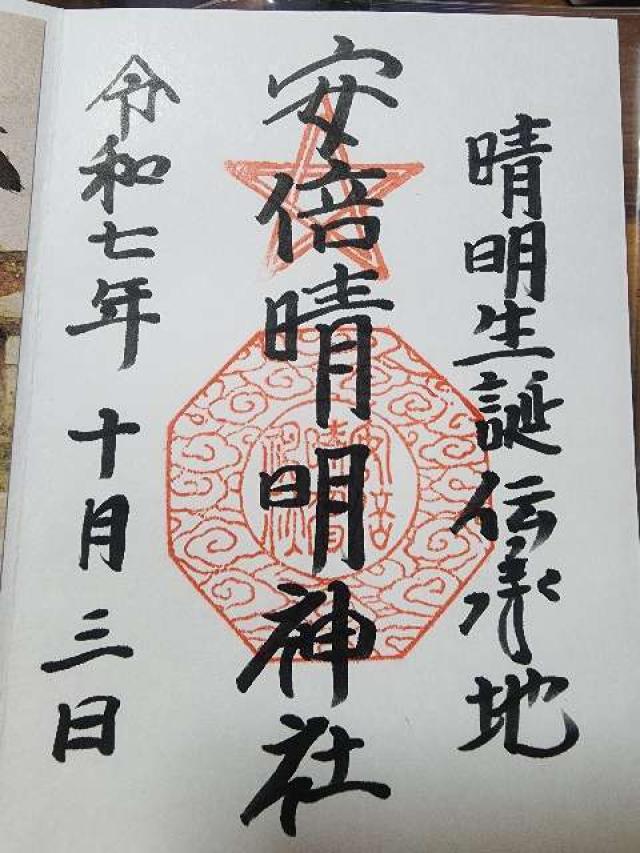 晴明生誕伝承地
安倍晴明神社
令和七年十月三日